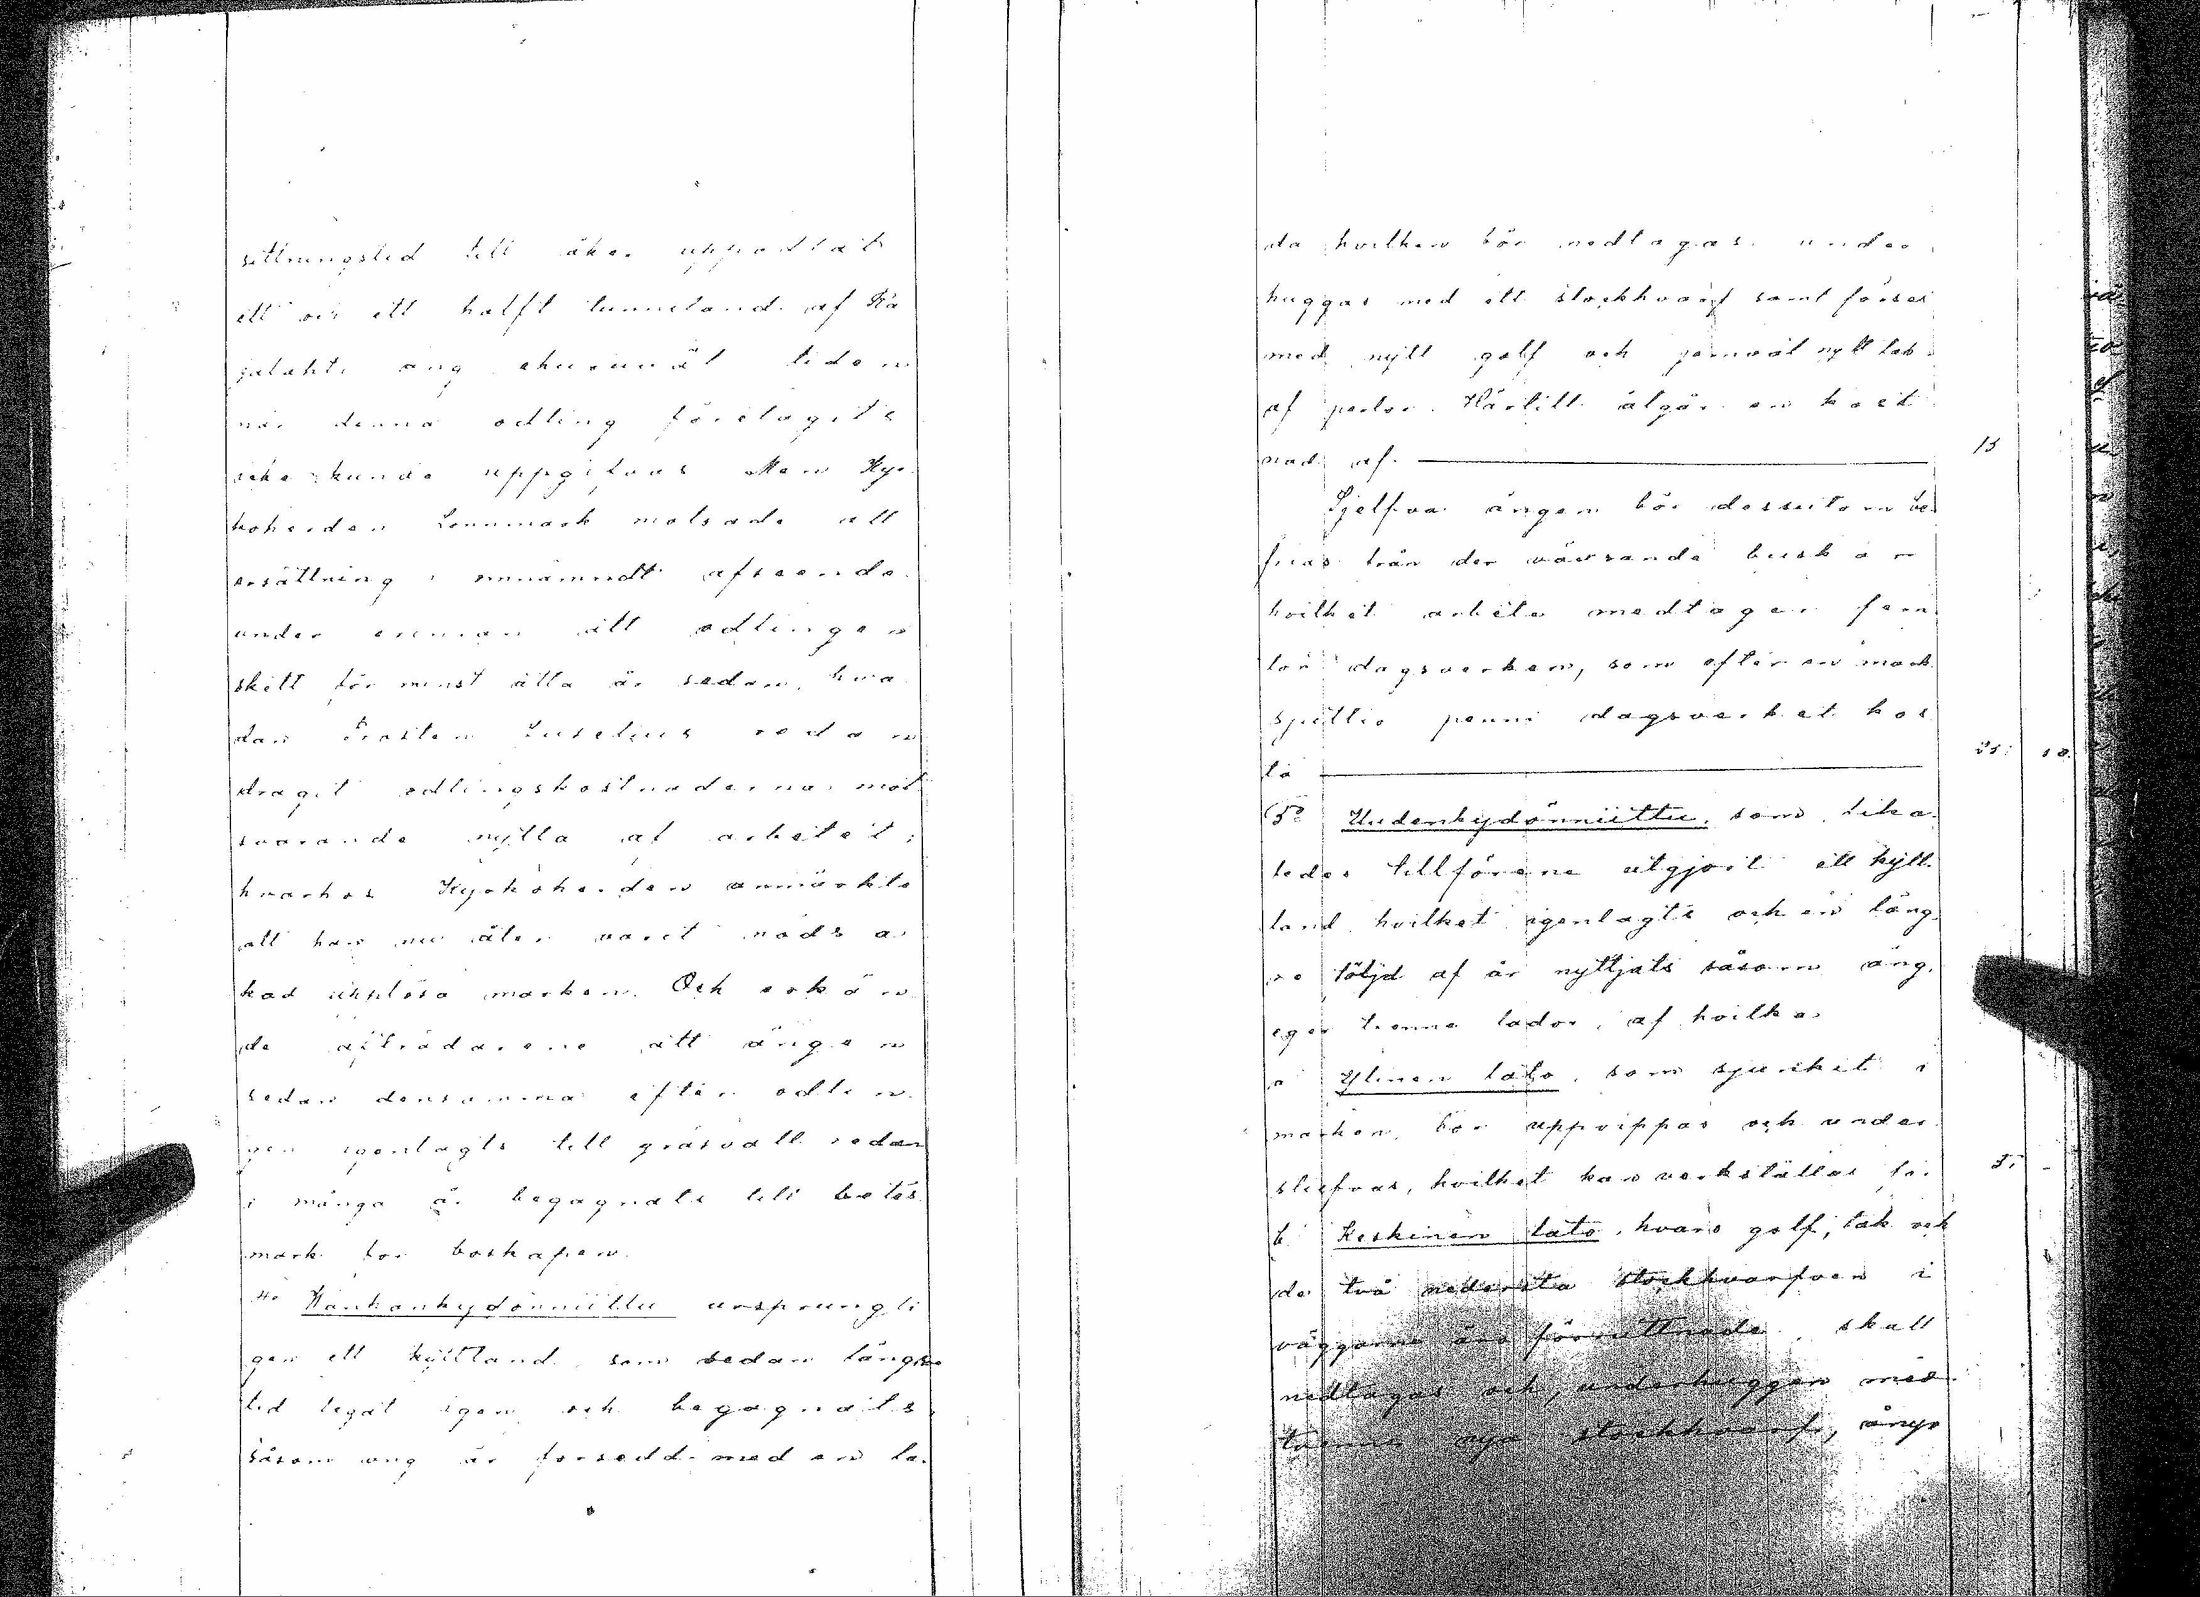 sittningstid till åker uppodlat
ett och ett halft tunneland af Ka
jalahti äng ehuruväl tiden
när denna odling företagits
icke kunde uppgifvas Men Kyr
koherden Lönnmark motsade all
ersättning i omnämndt afseende
under erinran att odlingen
skett för minst åtta år sedan, hva
dan Prosten Luselius redan
dragit odlingskostnaderna mot
svarande nytta af arbetet;
hvarhos Kyrkoherden anmärkte
att han nu åter varit nödsa
kad upplösa marken. Och erkän
de afträdarene att ängen
sedan densamma efter odlin
gen igenlagts till gräsvall redan
i många år begagnats till betes
mark för boskapen.
4o Kankankydönniittu ursprungli
gen ett kyttland, som sedan längre
tid legat igen och begagnats
såsom äng är försedd med en la-
da hvilken bör nedtagas under
huggas med ett stockhvarf samt förses
med nytt golf och jemväl nytt tak
af pertor. Härtill åtgår en kost
nad af 15
Sjelfva ängen bör dessutom be
frias från der växande buskar
hvilket arbete medtager fem
tio dagsverken, som efter en mark
sjuttio penni dagsverket kos
ta
5o Uudenkydönniittu, som lika
ledes tillförene utgjort ett kytt
land hvilket igenlagts och en läng
re följd af år nyttjats såsom äng,
eger trenne lador, af hvilka
a Ylinen lato, som sjunkit i
marken, bör uppvippas och under
stiefvas, hvilket kan verkställas för 5 -
b. Keskinen lato, hvars golf, tak och
de två nedersta stockhvarfven i
väggarne äro förruttnade, skall
nedtagas och, underhuggen med
tvenne nya stockhvarf, ånyo